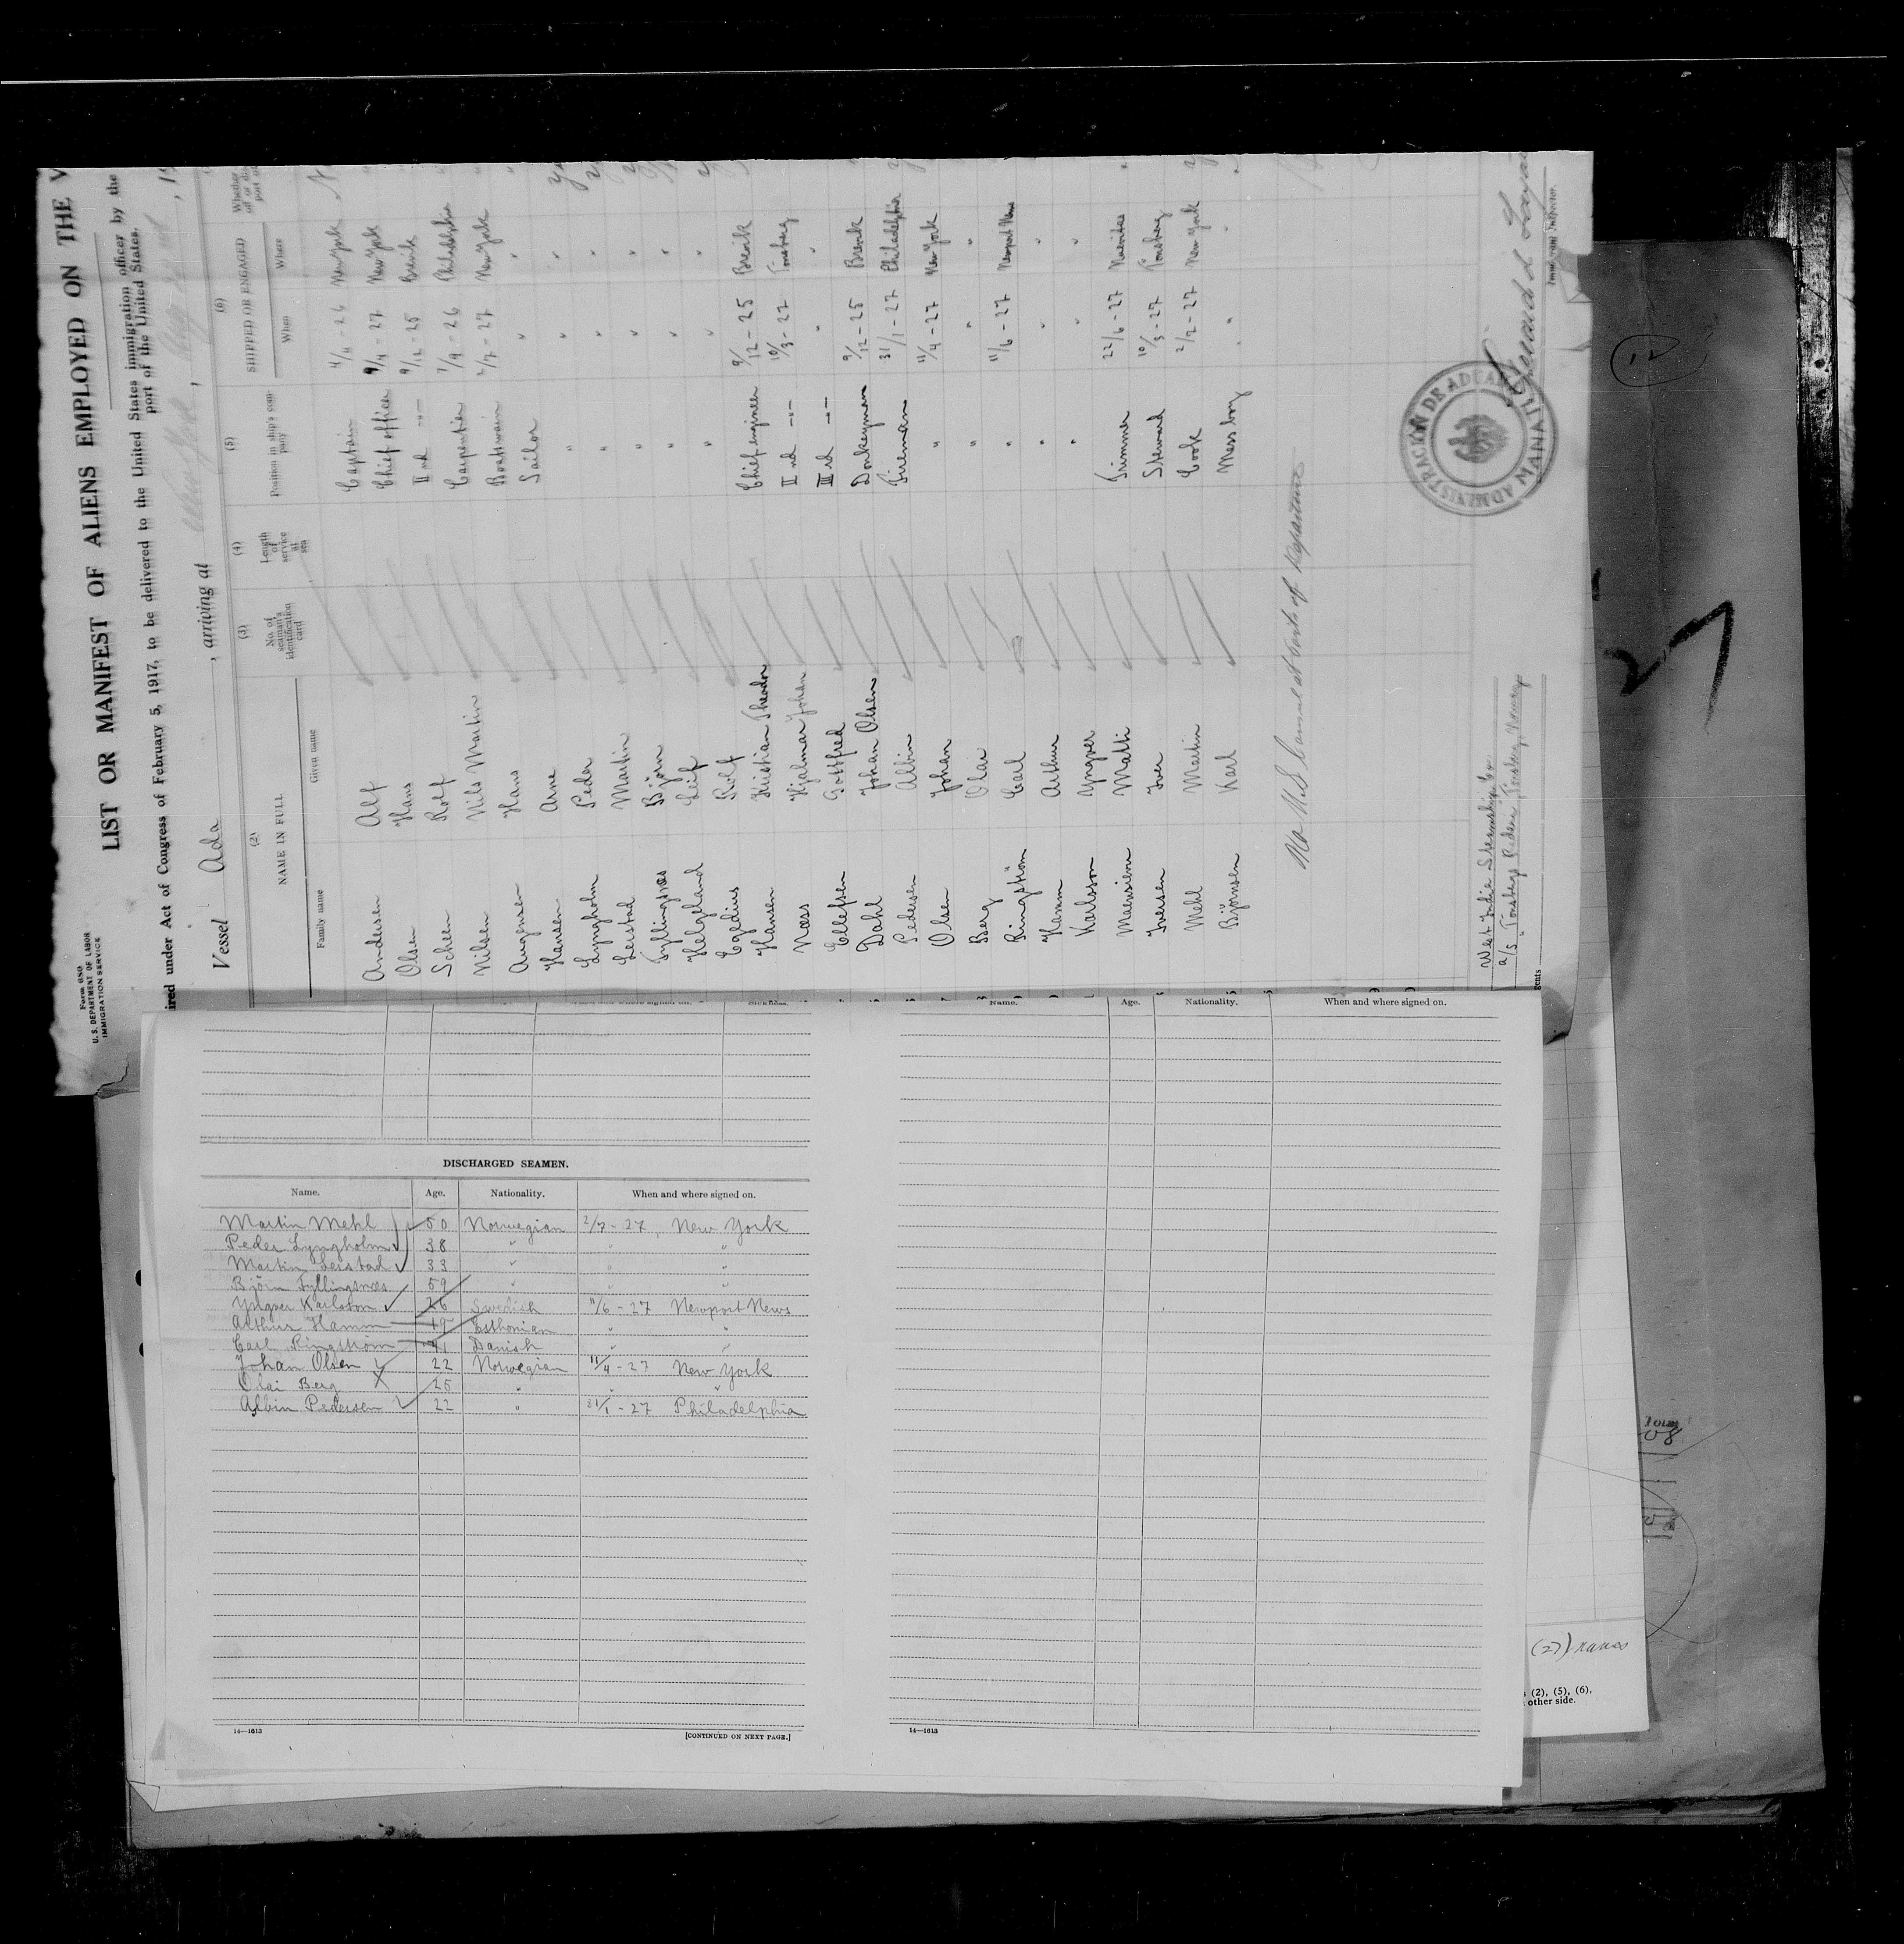 Form 680
U. S. DEPARTMENT OF LABOR
IMMIGRATION SERVICE
LIST OR MANIFEST OF ALIENS EMPLOYED ON THE V
ired under Act of Congress of February 5, 1917, to be delivered to the United States immigration officer by the
port of the United States.
Vessel Ada , arriving at New York , Aug , 19
(2) (3) (4) (5) (6)
NAME IN FULL No. of seaman's identification card Length of service at sea Position in ship's company SHIPPED OR ENGAGED
Family name Given name When Where
Andersen Alf Captain 4/4 - 26 New York
Olsen Hans Chief officer 9/4 - 27 New York
Scheen Rolf II nd -"- 9/12 - 25 Brevik
Nilsen Nils Martin Carpentier 7/9 - 26 Philadelphia
Augensen Hans Boatswain 2/7 - 27 New York
Hansen Arne Sailor " "
Lyngholm Peder " " "
Leistad Martin " " "
Fyllingsnæs Björn " " "
Helgeland Leif " " "
Egelius Rolf " " "
Hansen Kristian Theodor Chief engineer 9/12 - 25 Brevik
Næss Hjalmar Johan II nd -"- 10/3 - 27 Tonsberg
Ellefsen Gottfred III rd -"- " "
Dahl Johan Olsen Donkeyman 9/12 - 25 Brevik
Pedersen Albin Fireman 31/1 - 27 Philadelphia
Olsen Johan " 11/4 - 27 New York
Berg Olai " " "
Ringström Carl " 11/6 - 27 Newport News
Hamm Arthur " " "
Karlsson Yngver " " "
Maensivu Matti Trimmer 22/6 - 27
Iversen Iver Steward 10/3 - 27 Tonsberg
Mehl Martin Cook 2/7 - 27 New York
Björnsen Karl Mess boy " "
No U.S. Consul at Ports of Departure
West India Steamship Co.
a/s Tonsbergs Rederi, Tonsberg, Norway
ADMINISTRACIÓN DE ADUANA
MANATI
Immigrant Inspector.
Name. Age. Nationality. When and where signed on.
DISCHARGED SEAMEN.
Name. Age. Nationality. When and where signed on.
Martin Mehl 50 Norwegian 2/7 - 27, New York
Peder Lyngholm 38 " " "
Martin Leistad 33 " " "
Björn Fyllingsnæs 59 " " "
Yngver Karlsson 26 Swedish 11/6 - 27 Newport News
Arthur Hamm 19 Esthonian " "
Carl Ringström 41 Danish " "
Johan Olsen 22 Norwegian 11/4 - 27 New York
Olai Berg 25 " " "
Albin Pedersen 22 " 31/1 - 27 Philadelphia
14—1613 [CONTINUED ON NEXT PAGE.]
14—1613
12
27
08
(27) names
(2), (5), (6),
other side.